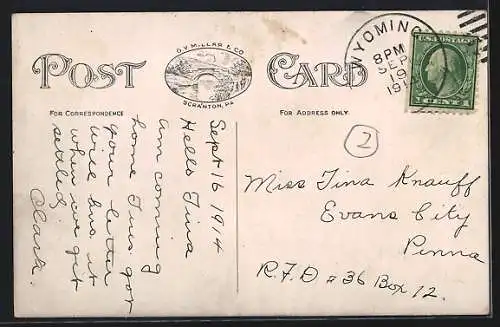 POST CARD
O.V. MILLAR & CO
SCRANTON, PA
WYOMING
8PM
SEP
19
191
U.S. POSTAGE
1 CENT 1
FOR CORRESPONDENCE
FOR ADDRESS ONLY.
2
Sept 16 1914
Hello Tina
Am coming
home Tues. got
your letter
will Ans. it
when we get
settled,
Clark.
Miss Tina Knauff
Evans City
Penna
R.F.D #36 Box 12.